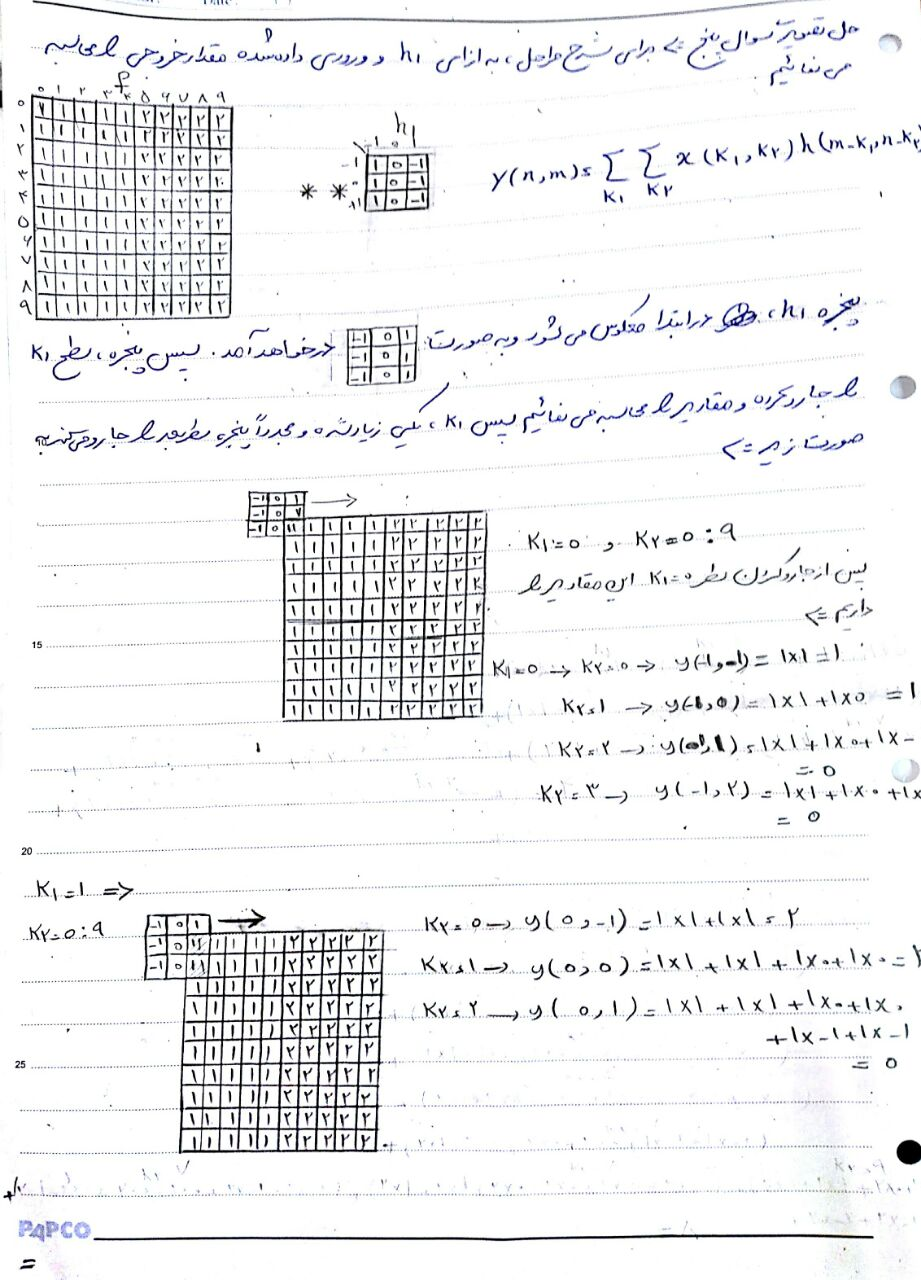 حل تصویر سوال پنج => برای شرح مراحل، به ازای h۱ و ورودی داده شده مقدار خروجی را محاسبه
می نمائیم.
f
۰ ۱ ۲ ۳ ۴ ۵ ۶ ۷ ۸ ۹
۰ ۱ ۱ ۱ ۱ ۱ ۲ ۲ ۲ ۲ ۲
۱ ۱ ۱ ۱ ۱ ۱ ۲ ۲ ۲ ۲ ۲
۲ ۱ ۱ ۱ ۱ ۱ ۲ ۲ ۲ ۲ ۲
۳ ۱ ۱ ۱ ۱ ۱ ۲ ۲ ۲ ۲ ۲
۴ ۱ ۱ ۱ ۱ ۱ ۲ ۲ ۲ ۲ ۲
۵ ۱ ۱ ۱ ۱ ۱ ۲ ۲ ۲ ۲ ۲
۶ ۱ ۱ ۱ ۱ ۱ ۲ ۲ ۲ ۲ ۲
۷ ۱ ۱ ۱ ۱ ۱ ۲ ۲ ۲ ۲ ۲
۸ ۱ ۱ ۱ ۱ ۱ ۲ ۲ ۲ ۲ ۲
۹ ۱ ۱ ۱ ۱ ۱ ۲ ۲ ۲ ۲ ۲
* *
h۱
-۱ ۰ ۱
-۱ ۱ ۰ -۱
۰ ۱ ۰ -۱
۱ ۱ ۰ -۱
y(n,m)= Σ Σ x(K۱,K۲) h(m-K۱,n-K۲)
K۱ K۲
پنجره h۱، در ابتدا معکوس می شود و به صورت
-۱ ۰ ۱
-۱ ۰ ۱
-۱ ۰ ۱
در خواهد آمد. سپس پنجره، سطح K۱
را جارو کرده و مقادیر را محاسبه می نمائیم سپس K۱، یکی زیاد شده و مجدداً پنجره سطر بعد را جارو می کند به
صورت زیر =>
-۱ ۰ ۱ →
-۱ ۰
-۱ ۰ ۱ ۱ ۱ ۱ ۱ ۲ ۲ ۲ ۲ ۲
۱ ۱ ۱ ۱ ۱ ۲ ۲ ۲ ۲ ۲
۱ ۱ ۱ ۱ ۱ ۲ ۲ ۲ ۲ ۲
۱ ۱ ۱ ۱ ۱ ۲ ۲ ۲ ۲ ۲
۱ ۱ ۱ ۱ ۱ ۲ ۲ ۲ ۲ ۲
۱ ۱ ۱ ۱ ۱ ۲ ۲ ۲ ۲ ۲
۱ ۱ ۱ ۱ ۱ ۲ ۲ ۲ ۲ ۲
۱ ۱ ۱ ۱ ۱ ۲ ۲ ۲ ۲ ۲
۱ ۱ ۱ ۱ ۱ ۲ ۲ ۲ ۲ ۲
۱ ۱ ۱ ۱ ۱ ۲ ۲ ۲ ۲ ۲
K۱=۰ و K۲=۰:۹
پس از جارو کردن سطر K۱=۰ این مقادیر را
داریم =>
15
K۱=۰ → K۲=۰ → y(-۱,-۱)= ۱x۱ =۱
K۲=۱ → y(-۱,۰)= ۱x۱+۱x۰ =۱
K۲=۲ → y(-۱,۱)=۱x۱+۱x۰+۱x-
=۰
K۲=۳ → y(-۱,۲)= ۱x۱+۱x۰+۱x
= ۰
20
K۱=۱ =>
K۲=۰:۹
-۱ ۰ ۱ →
-۱ ۰ ۱ ۱ ۱ ۱ ۱ ۲ ۲ ۲ ۲ ۲
-۱ ۰ ۱ ۱ ۱ ۱ ۱ ۲ ۲ ۲ ۲ ۲
۱ ۱ ۱ ۱ ۱ ۲ ۲ ۲ ۲ ۲
۱ ۱ ۱ ۱ ۱ ۲ ۲ ۲ ۲ ۲
۱ ۱ ۱ ۱ ۱ ۲ ۲ ۲ ۲ ۲
۱ ۱ ۱ ۱ ۱ ۲ ۲ ۲ ۲ ۲
۱ ۱ ۱ ۱ ۱ ۲ ۲ ۲ ۲ ۲
۱ ۱ ۱ ۱ ۱ ۲ ۲ ۲ ۲ ۲
۱ ۱ ۱ ۱ ۱ ۲ ۲ ۲ ۲ ۲
K۲=۰ → y(۰,-۱)=۱x۱+۱x۱=۲
K۲=۱ → y(۰,۰)=۱x۱+۱x۱+۱x۰+۱x۰=۲
K۲=۲ → y(۰,۱)=۱x۱+۱x۱+۱x۰+۱x۰
+۱x-۱+۱x-۱
= ۰
25
PAPCO
=